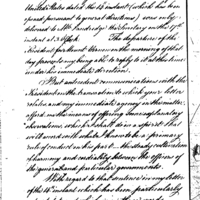 United States dated the 15 instant (which has been
opened pursuant to general directions) was only
delivered to Mr. Secretary on the 17th
instant at 3 o'clock. The departure of the
President for Mount Vernon on the morning of that
day prevented my being able to reply to it at that time
under his immediate direction.
That constant communications with the
President on the transaction to which your letter
relates and my immediate agency in the matter,
afford me the means of offering some explanatory
observations, which I shall do in a spirit that
will accord with what I know to be a primary
rule of conduct on his part – the steady cultivation
of harmony and cordiality between the officers of
the general and particular governments.
With regard to that sentence in my letter
of the 16th instant which has been particularly